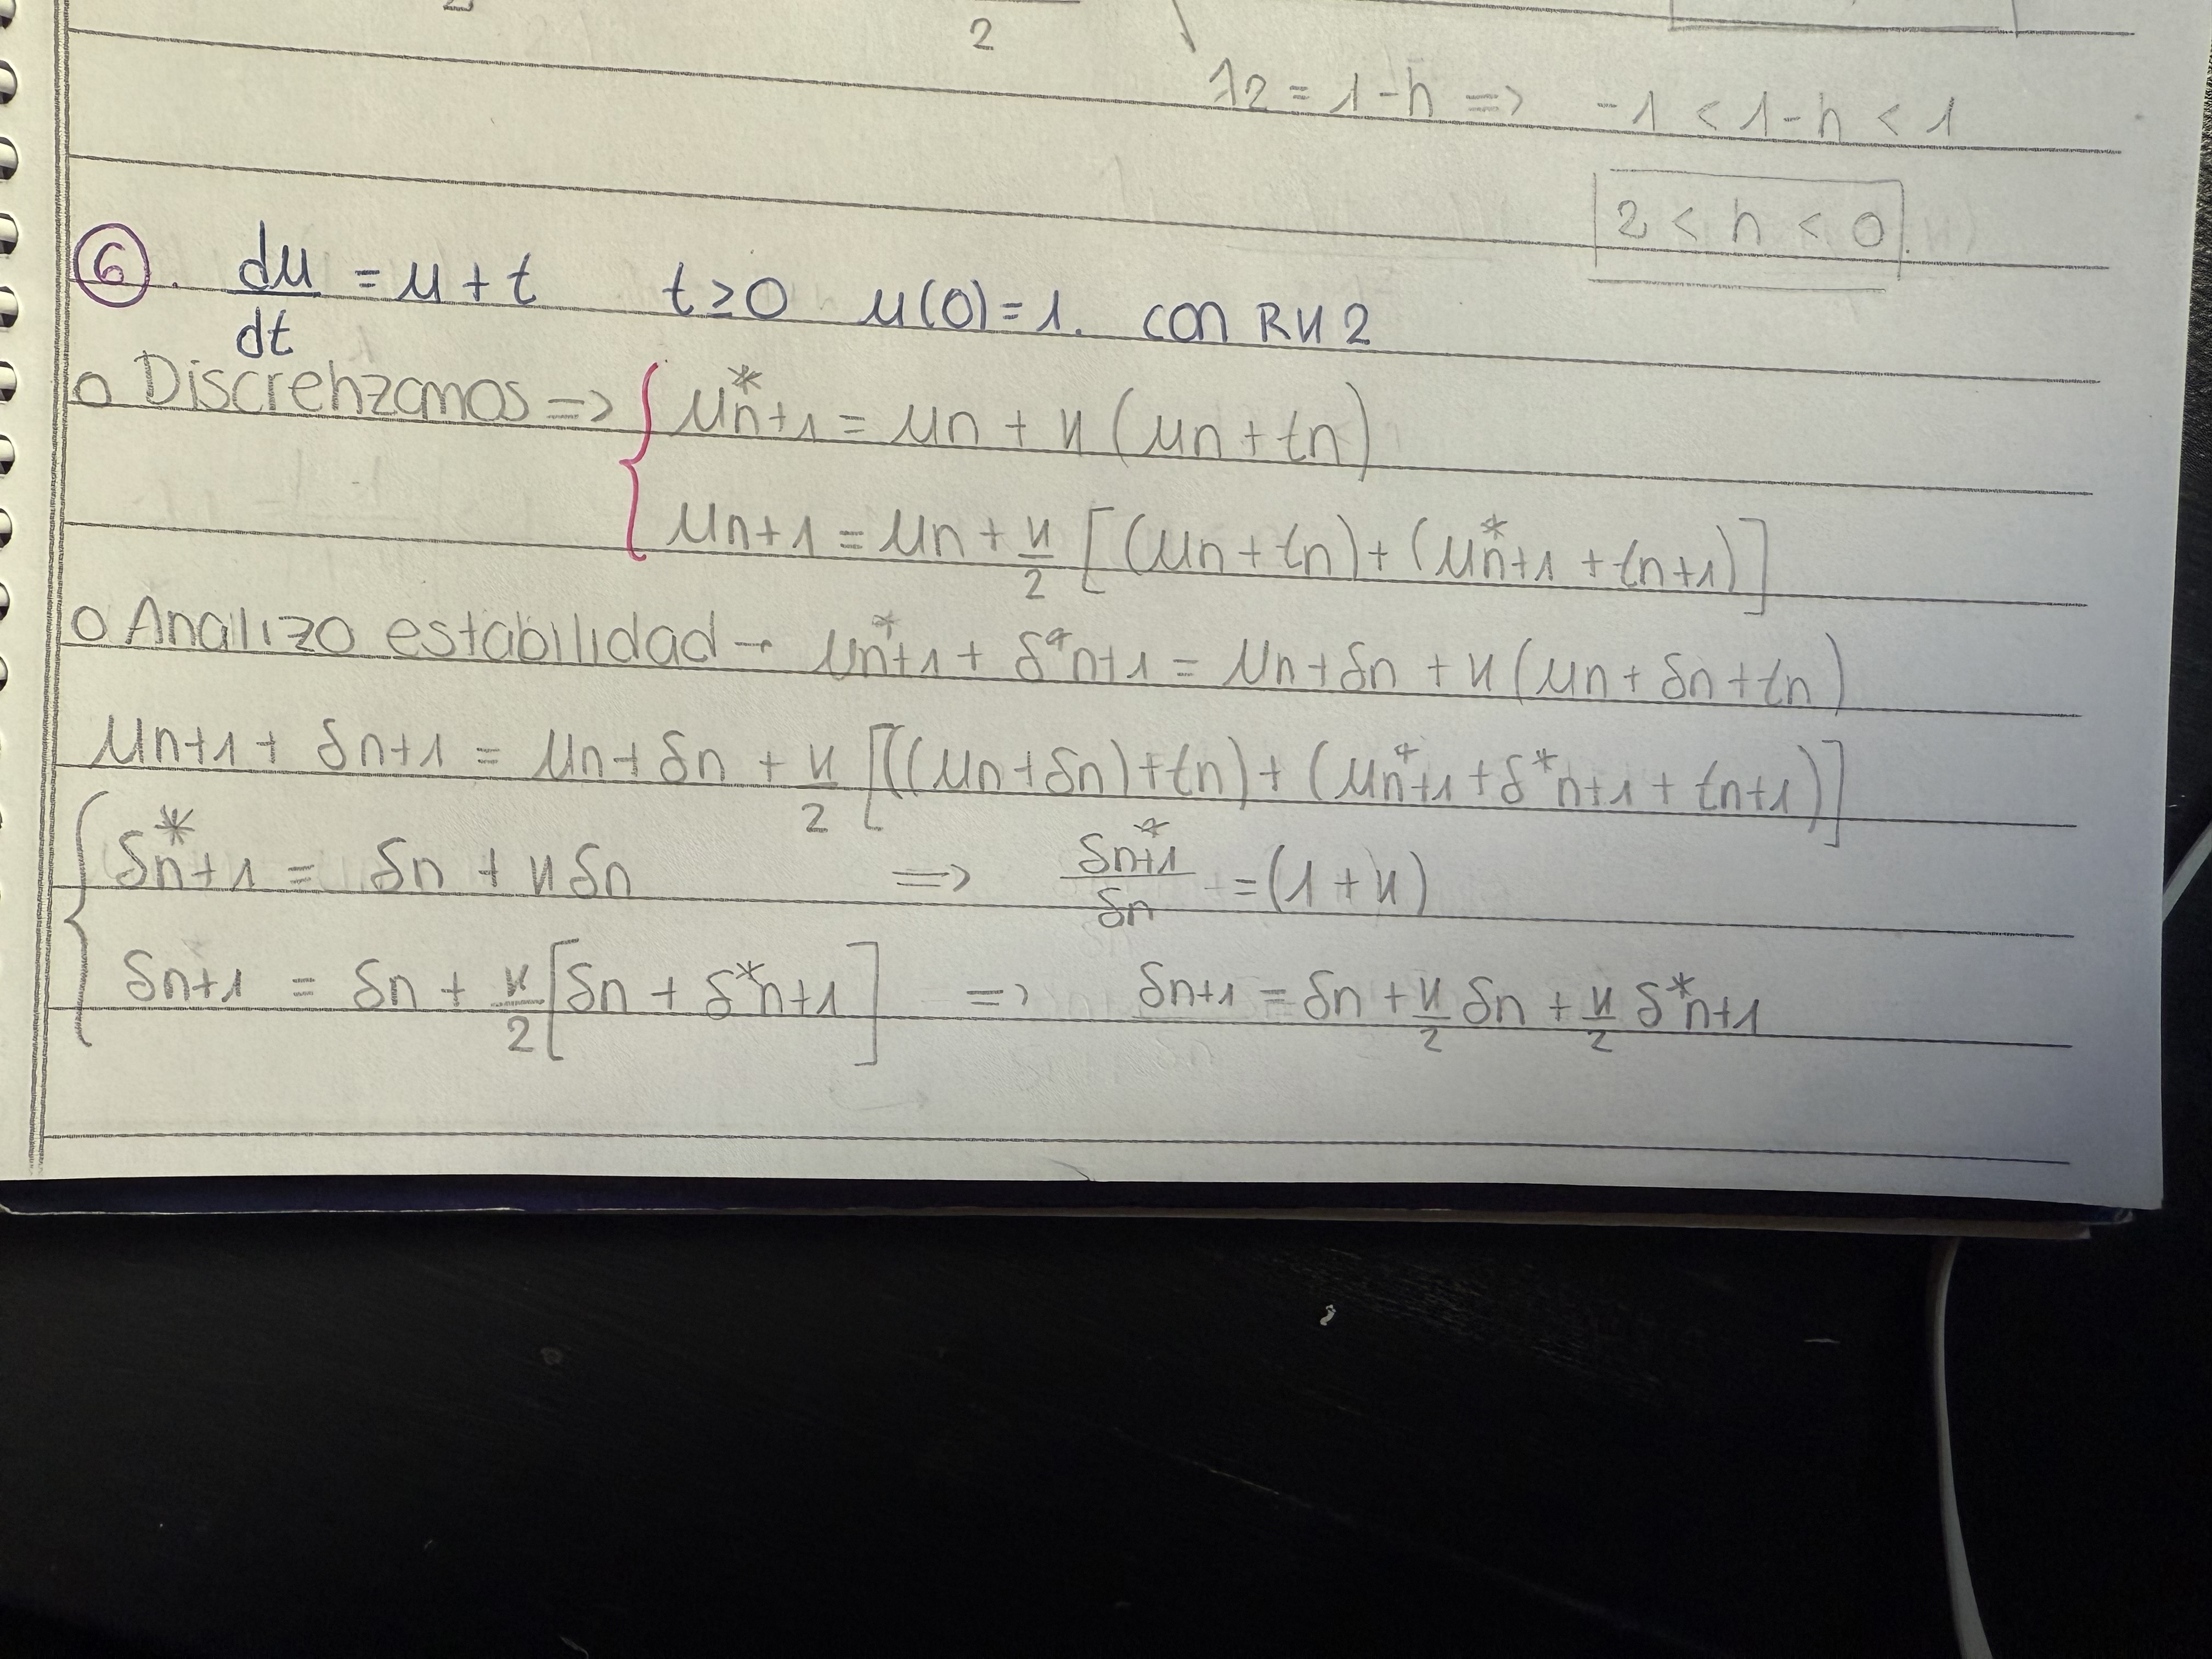 2
λ2 = 1 - h => -1 < 1 - h < 1
2 < h < 0.
6. du/dt = u + t t ≥ 0 u(0) = 1. con RK2
o Discretizamos => { u*n+1 = un + k (un + tn)
un+1 = un + k/2 [(un + tn) + (u*n+1 + tn+1)]
o Analizo estabilidad → u*n+1 + δ*n+1 = un + δn + k (un + δn + tn)
un+1 + δn+1 = un + δn + k/2 [((un + δn) + tn) + (u*n+1 + δ*n+1 + tn+1)]
{ δ*n+1 = δn + k δn => δ*n+1/δn = (1 + k)
δn+1 = δn + k/2 [δn + δ*n+1] => δn+1 = δn + k/2 δn + k/2 δ*n+1